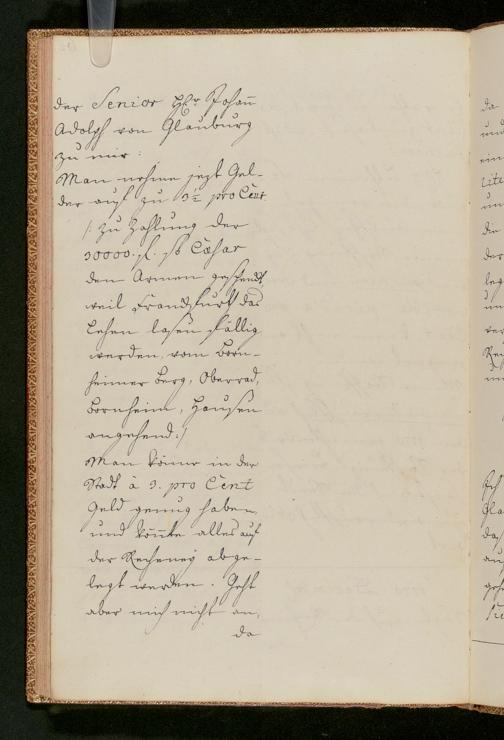 der Senior Hr. Johann
Adolph von Glauburg
zu mir:
Man nehme jezt Gel-
der auf zu 3½ pro Cent
/: zu Zahlung der
30000. fl. so Cæsar
den Armen geschenckt,
weil Franckfurt das
Lehen lasen fällig
werden, vom Born-
heimer Berg, Oberrad,
Bornheim, Hausen
angehend:/
Man könne in der
Stadt à 3. pro Cent
Geld genug haben,
und könte alles auf
der Recheney abge-
legt werden. Geht
aber mich nicht an,
da
da
und
ein
die
der
leg
un
ver
Re
Ich
Gla
das